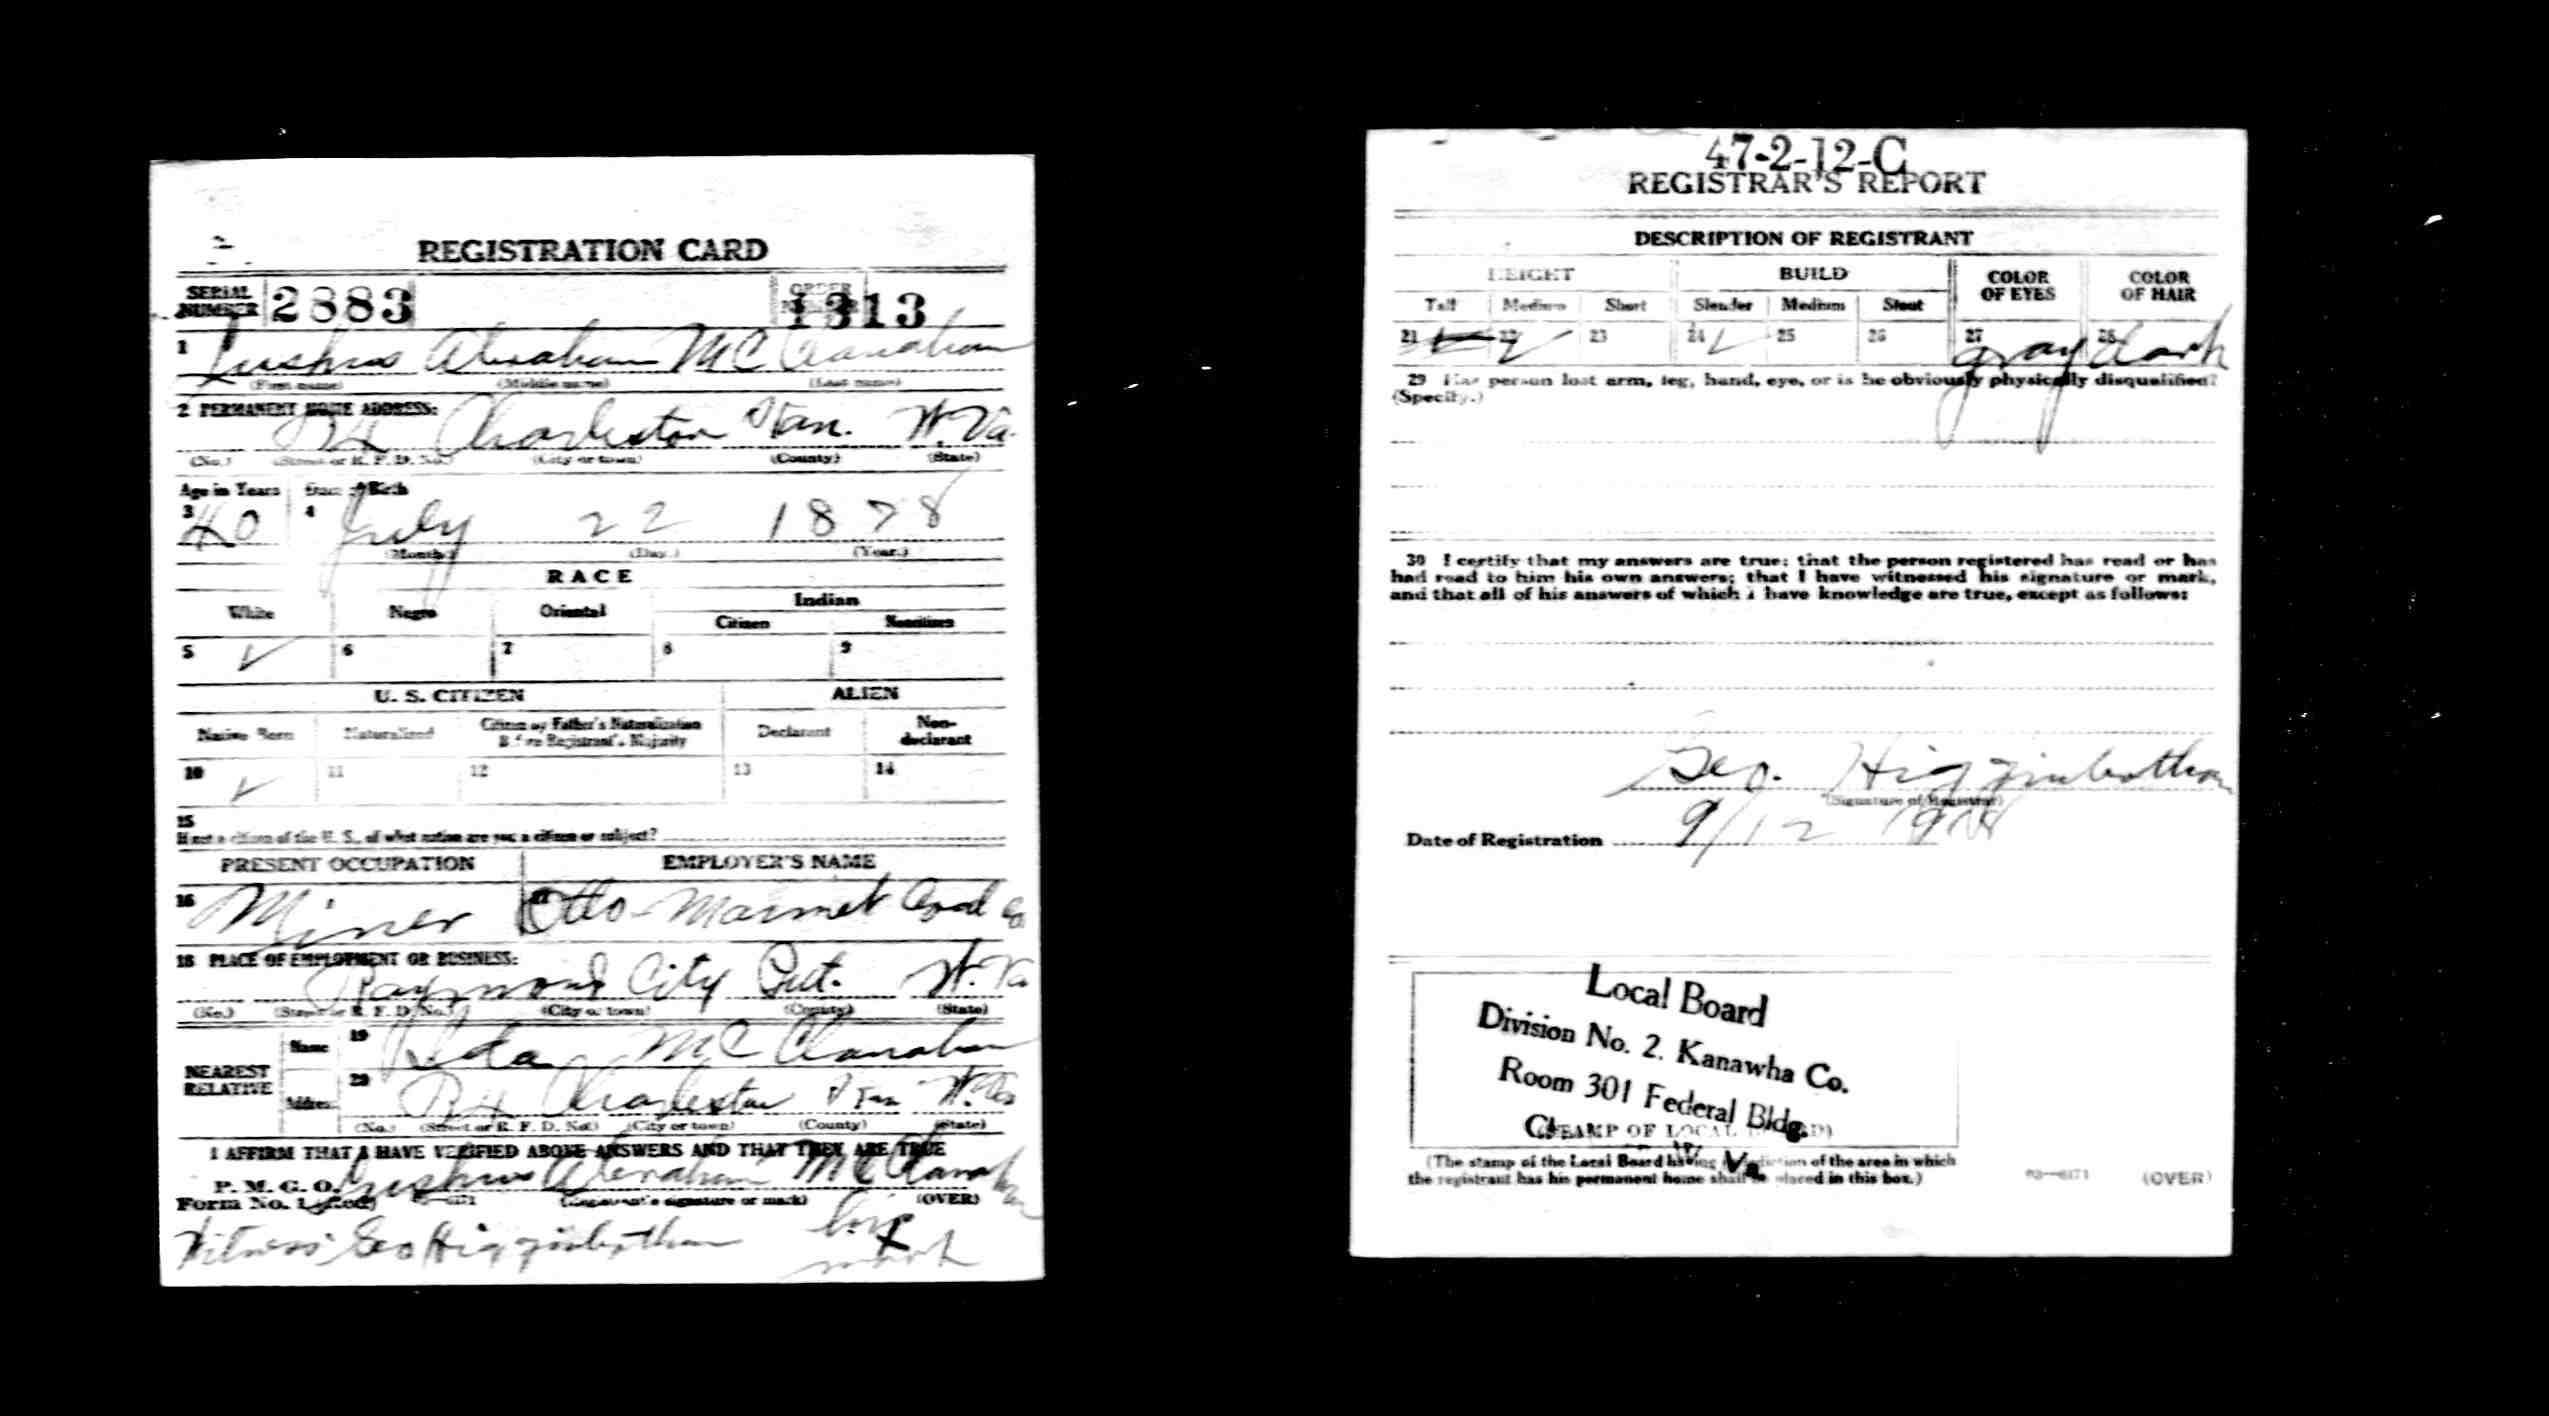 REGISTRATION CARD
SERIAL NUMBER 2883 ORDER NUMBER 1313
1 Lushus Abraham McClanahan
(First name) (Middle name) (Last name)
2 PERMANENT HOME ADDRESS:
R4 Charleston Kan. W. Va.
(No.) (Street or R. F. D. No.) (City or town) (County) (State)
Age in Years Date of Birth
3 40 4 July 22 1878
(Month.) (Day.) (Year.)
RACE
White Negro Oriental Indian
Citizen Noncitizen
5 ✓ 6 7 8 9
U. S. CITIZEN ALIEN
Native Born Naturalized Citizen by Father's Naturalization Before Registrant's Majority Declarant Non-declarant
10 ✓ 11 12 13 14
15
If not a citizen of the U. S., of what nation are you a citizen or subject?
PRESENT OCCUPATION EMPLOYER'S NAME
16 Miner 17 Otto Marmet Coal Co
18 PLACE OF EMPLOYMENT OR BUSINESS:
Raymond City Put. W. Va.
(No.) (Street or R. F. D. No.) (City or town) (County) (State)
NEAREST RELATIVE
Name 19 Ida McClanahan
Address 20 R4 Charleston Kan W. Va
(No.) (Street or R. F. D. No.) (City or town) (County) (State)
I AFFIRM THAT I HAVE VERIFIED ABOVE ANSWERS AND THAT THEY ARE TRUE
P. M. G. O.
Form No. 1 (Red) Lushus Abraham McClanahan
(Registrant's signature or mark) (OVER)
Witness Geo Higginbotham his X mark
47-2-12-C
REGISTRAR'S REPORT
DESCRIPTION OF REGISTRANT
HEIGHT BUILD COLOR OF EYES COLOR OF HAIR
Tall Medium Short Slender Medium Stout
21 22 ✓ 23 24 ✓ 25 26 27 gray 28 dark
29 Has person lost arm, leg, hand, eye, or is he obviously physically disqualified?
(Specify.)
30 I certify that my answers are true; that the person registered has read or has
had read to him his own answers; that I have witnessed his signature or mark,
and that all of his answers of which I have knowledge are true, except as follows:
Geo. Higginbotham
(Signature of Registrar)
Date of Registration 9/12 1918
Local Board
Division No. 2. Kanawha Co.
Room 301 Federal Bldg.
(STAMP OF LOCAL BOARD)
(The stamp of the Local Board having jurisdiction of the area in which
the registrant has his permanent home shall be placed in this box.)
03—6171 (OVER)